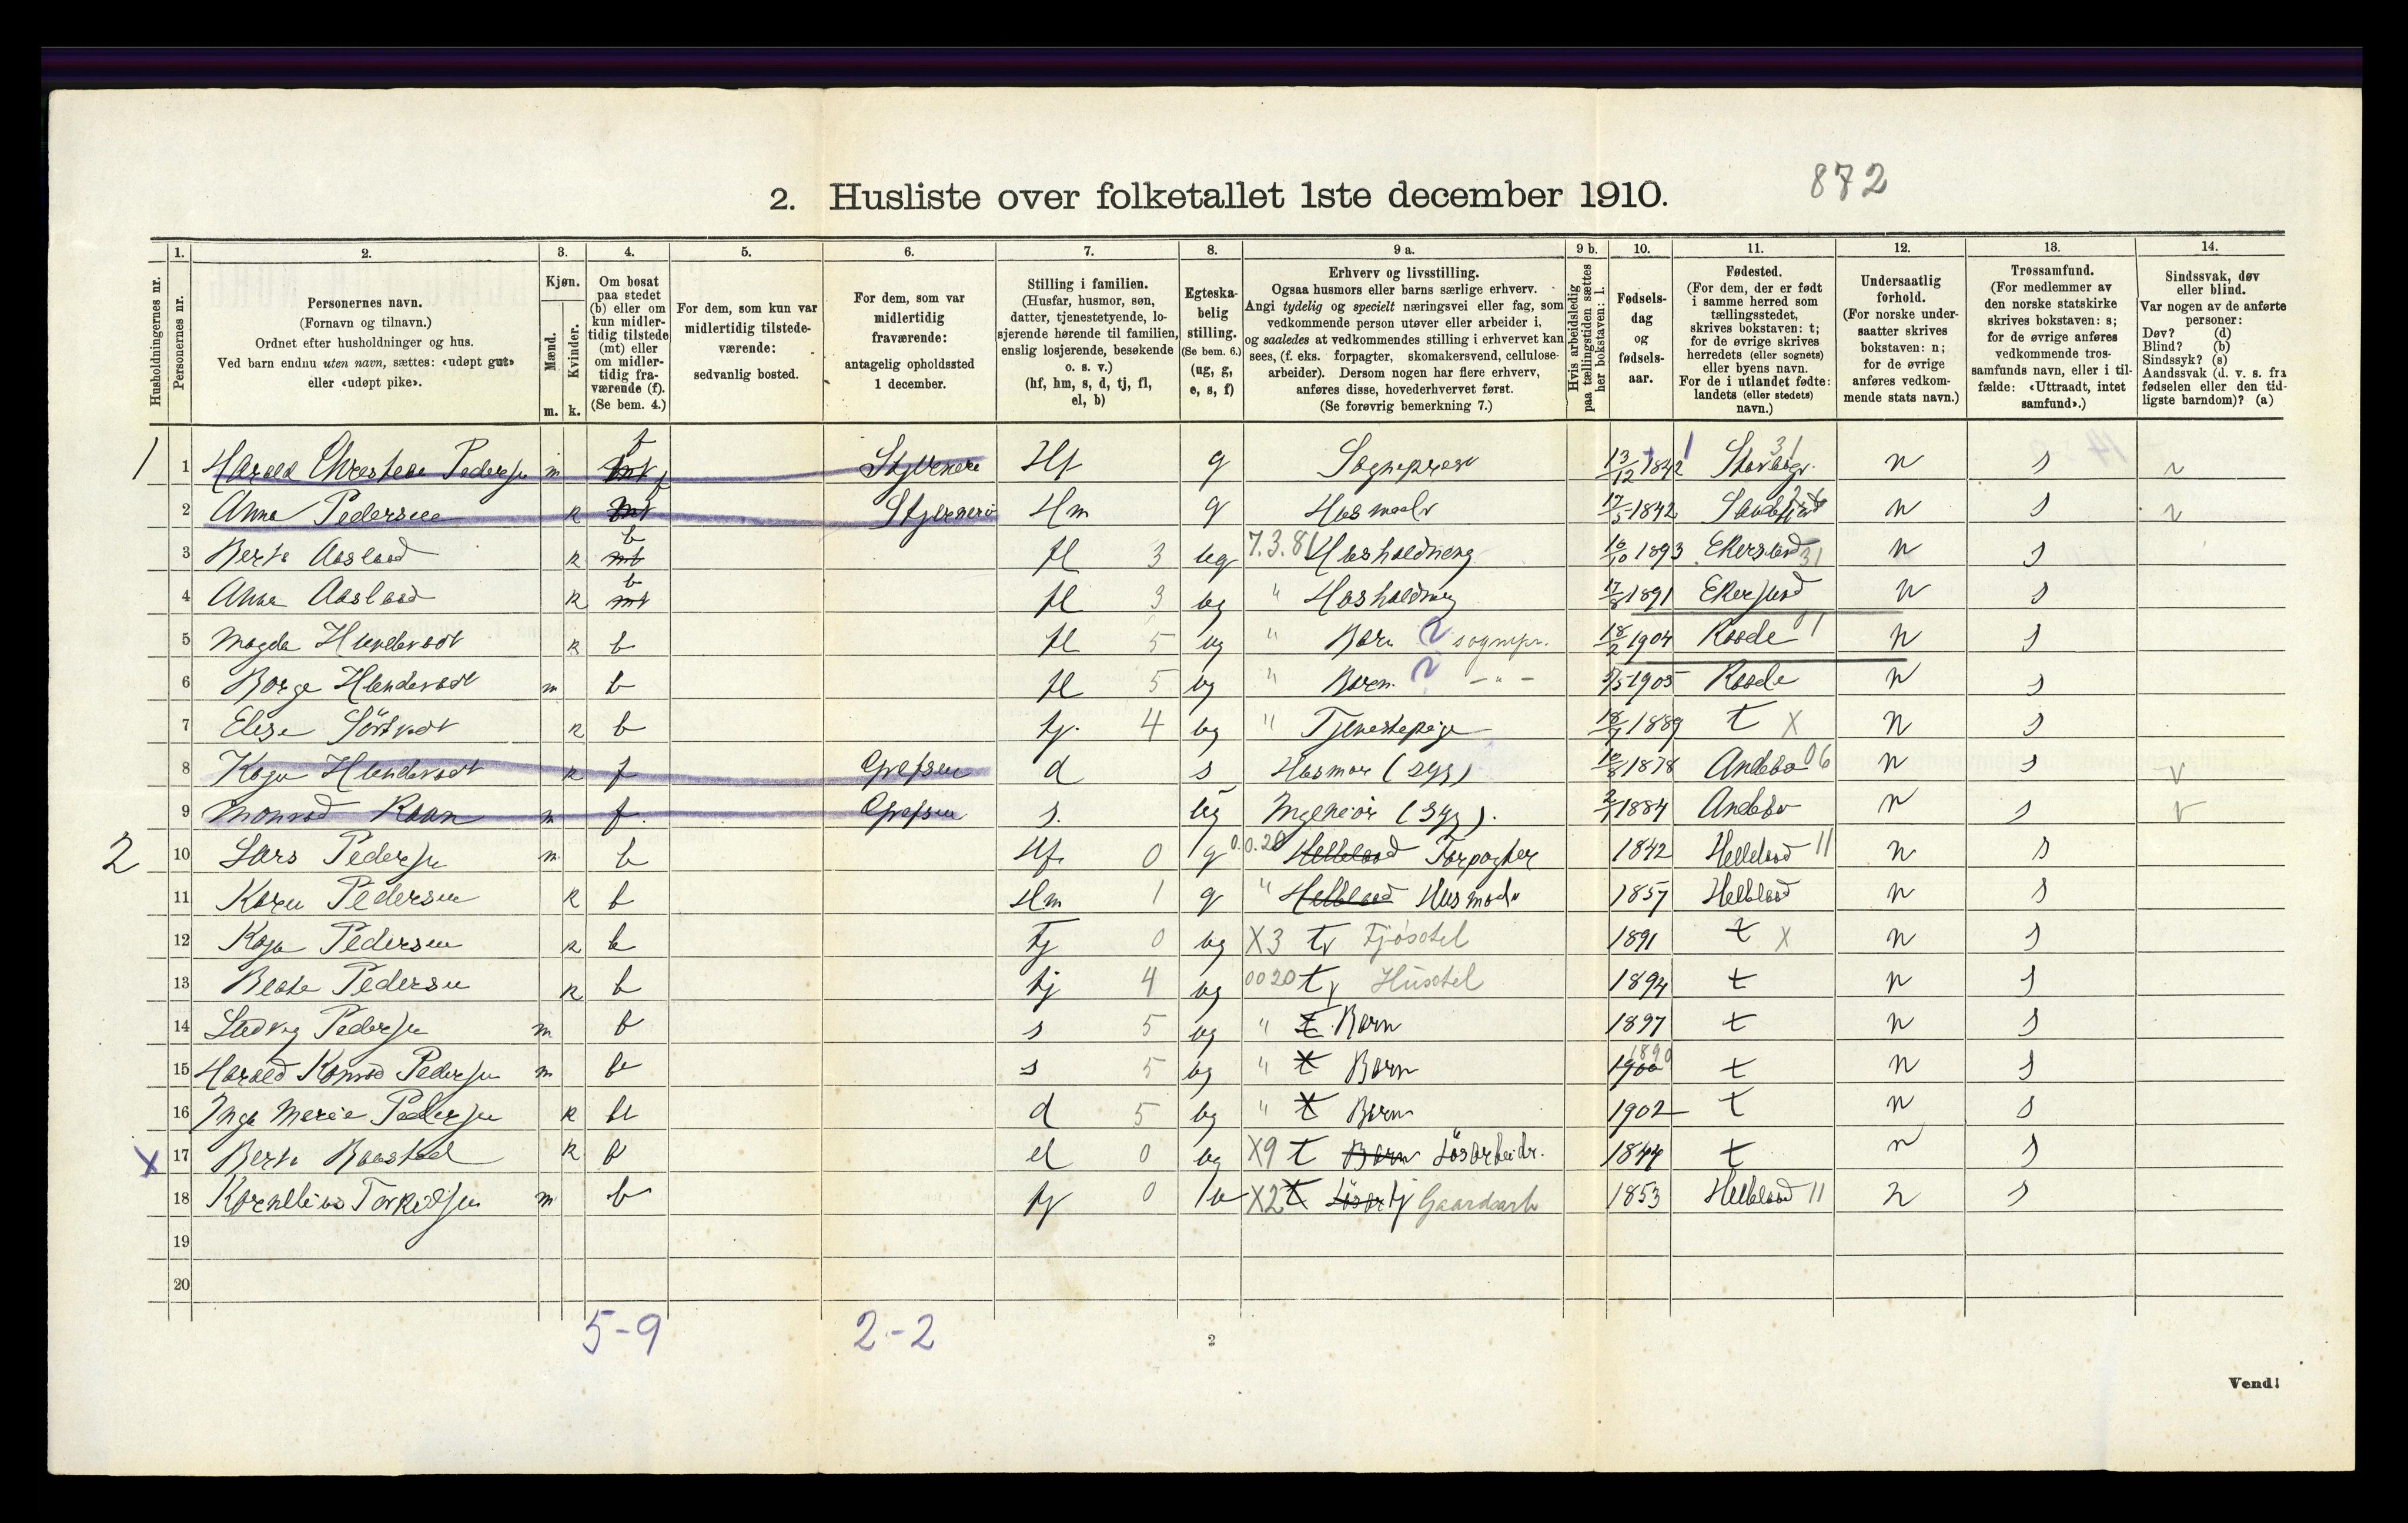 872
2. Husliste over folketallet 1ste december 1910.
Husholdningernes nr.
1. Personernes nr.
2. Personernes navn. (Fornavn og tilnavn.) Ordnet efter husholdninger og hus. Ved barn endnu uten navn, sættes: «udøpt gut» eller «udøpt pike».
3. Kjøn. Mænd. m. Kvinder. k.
4. Om bosat paa stedet (b) eller om kun midlertidig tilstede (mt) eller om midlertidig fraværende (f). (Se bem. 4.)
5. For dem, som kun var midlertidig tilstedeværende: sedvanlig bosted.
6. For dem, som var midlertidig fraværende: antagelig opholdssted 1 december.
7. Stilling i familien. (Husfar, husmor, søn, datter, tjenestetyende, losjerende hørende til familien, enslig losjerende, besøkende o. s. v.) (hf, hm, s, d, tj, fl, el, b)
8. Egteskabelig stilling. (Se bem. 6.) (ug, g, e, s, f)
9 a. Erhverv og livsstilling. Ogsaa husmors eller barns særlige erhverv. Angi tydelig og specielt næringsvei eller fag, som vedkommende person utøver eller arbeider i, og saaledes at vedkommendes stilling i erhvervet kan sees, (f. eks. forpagter, skomakersvend, cellulosearbeider). Dersom nogen har flere erhverv, anføres disse, hovederhvervet først. (Se forøvrig bemerkning 7.)
9 b. Hvis arbeidsledig paa tællingstiden sættes her bokstaven: l.
10. Fødselsdag og fødselsaar.
11. Fødested. (For dem, der er født i samme herred som tællingsstedet, skrives bokstaven: t; for de øvrige skrives herredets (eller sognets) eller byens navn. For de i utlandet fødte: landets (eller stedets) navn.)
12. Undersaatlig forhold. (For norske undersaatter skrives bokstaven: n; for de øvrige anføres vedkommende stats navn.)
13. Trossamfund. (For medlemmer av den norske statskirke skrives bokstaven: s; for de øvrige anføres vedkommende trossamfunds navn, eller i tilfælde: «Uttraadt, intet samfund».)
14. Sindssvak, døv eller blind. Var nogen av de anførte personer: Døv? (d) Blind? (b) Sindssyk? (s) Aandssvak (d. v. s. fra fødselen eller den tidligste barndom)? (a)
1 1 m f Hf g 13/12 1842 n s
2 Anna Pedersen k Hm g 1842 n s
3 Berta Aasland k b mt fl 3 ug 7.3.81 Husholdning 16/10 1893 Ekersund 31 n s
4 Anna Aasland k b mt fl 3 ug " Husholdning 17/8 1891 Ekersund n s
5 Magda k b fl 5 ug " Barn sognepr. 18/2 1904 Raade n s
6 Borge m b fl 5 ug " Barn - " - 1905 Raade n s
7 Elise k b tj. 4 ug " Tjenestepige 1889 t X n s
8 k f Grefsen d s Husmor (syg) 1878 Andebu 06 n s
9 m f. Grefsen s. ug Ingeniör (syg). 1884 Andebu n s
2 10 Lars Pedersen m b Hf 0 g 0.0.20 Helleland Forpagter 1842 Helleland 11 n s
11 Karen Pedersen k b Hm 1 g " Helleland Husmoder 1857 Helleland n s
12 Kaja Pedersen k b tj 0 ug X3 Fjøsstel 1891 t X n s
13 Beate Pedersen k b tj 4 ug 0020 Husstel 1894 t n s
14 Ludvig Pedersen m b s 5 ug " t Barn 1897 t n s
15 Harald Konrad Pedersen m b s 5 ug " t Barn 1900 1890 t n s
16 Inga Marie Pedersen k b d 5 ug " t Barn 1902 t n s
X 17 Berta k b el 0 ug X9 t Barn Lösarbeidr. 1844 t n s
18 Kornelius Torkildsen m b tj 0 X2 t tj Gaardsarb 1853 Helleland 11 n s
19
20
5-9 2-2
2
Vend!